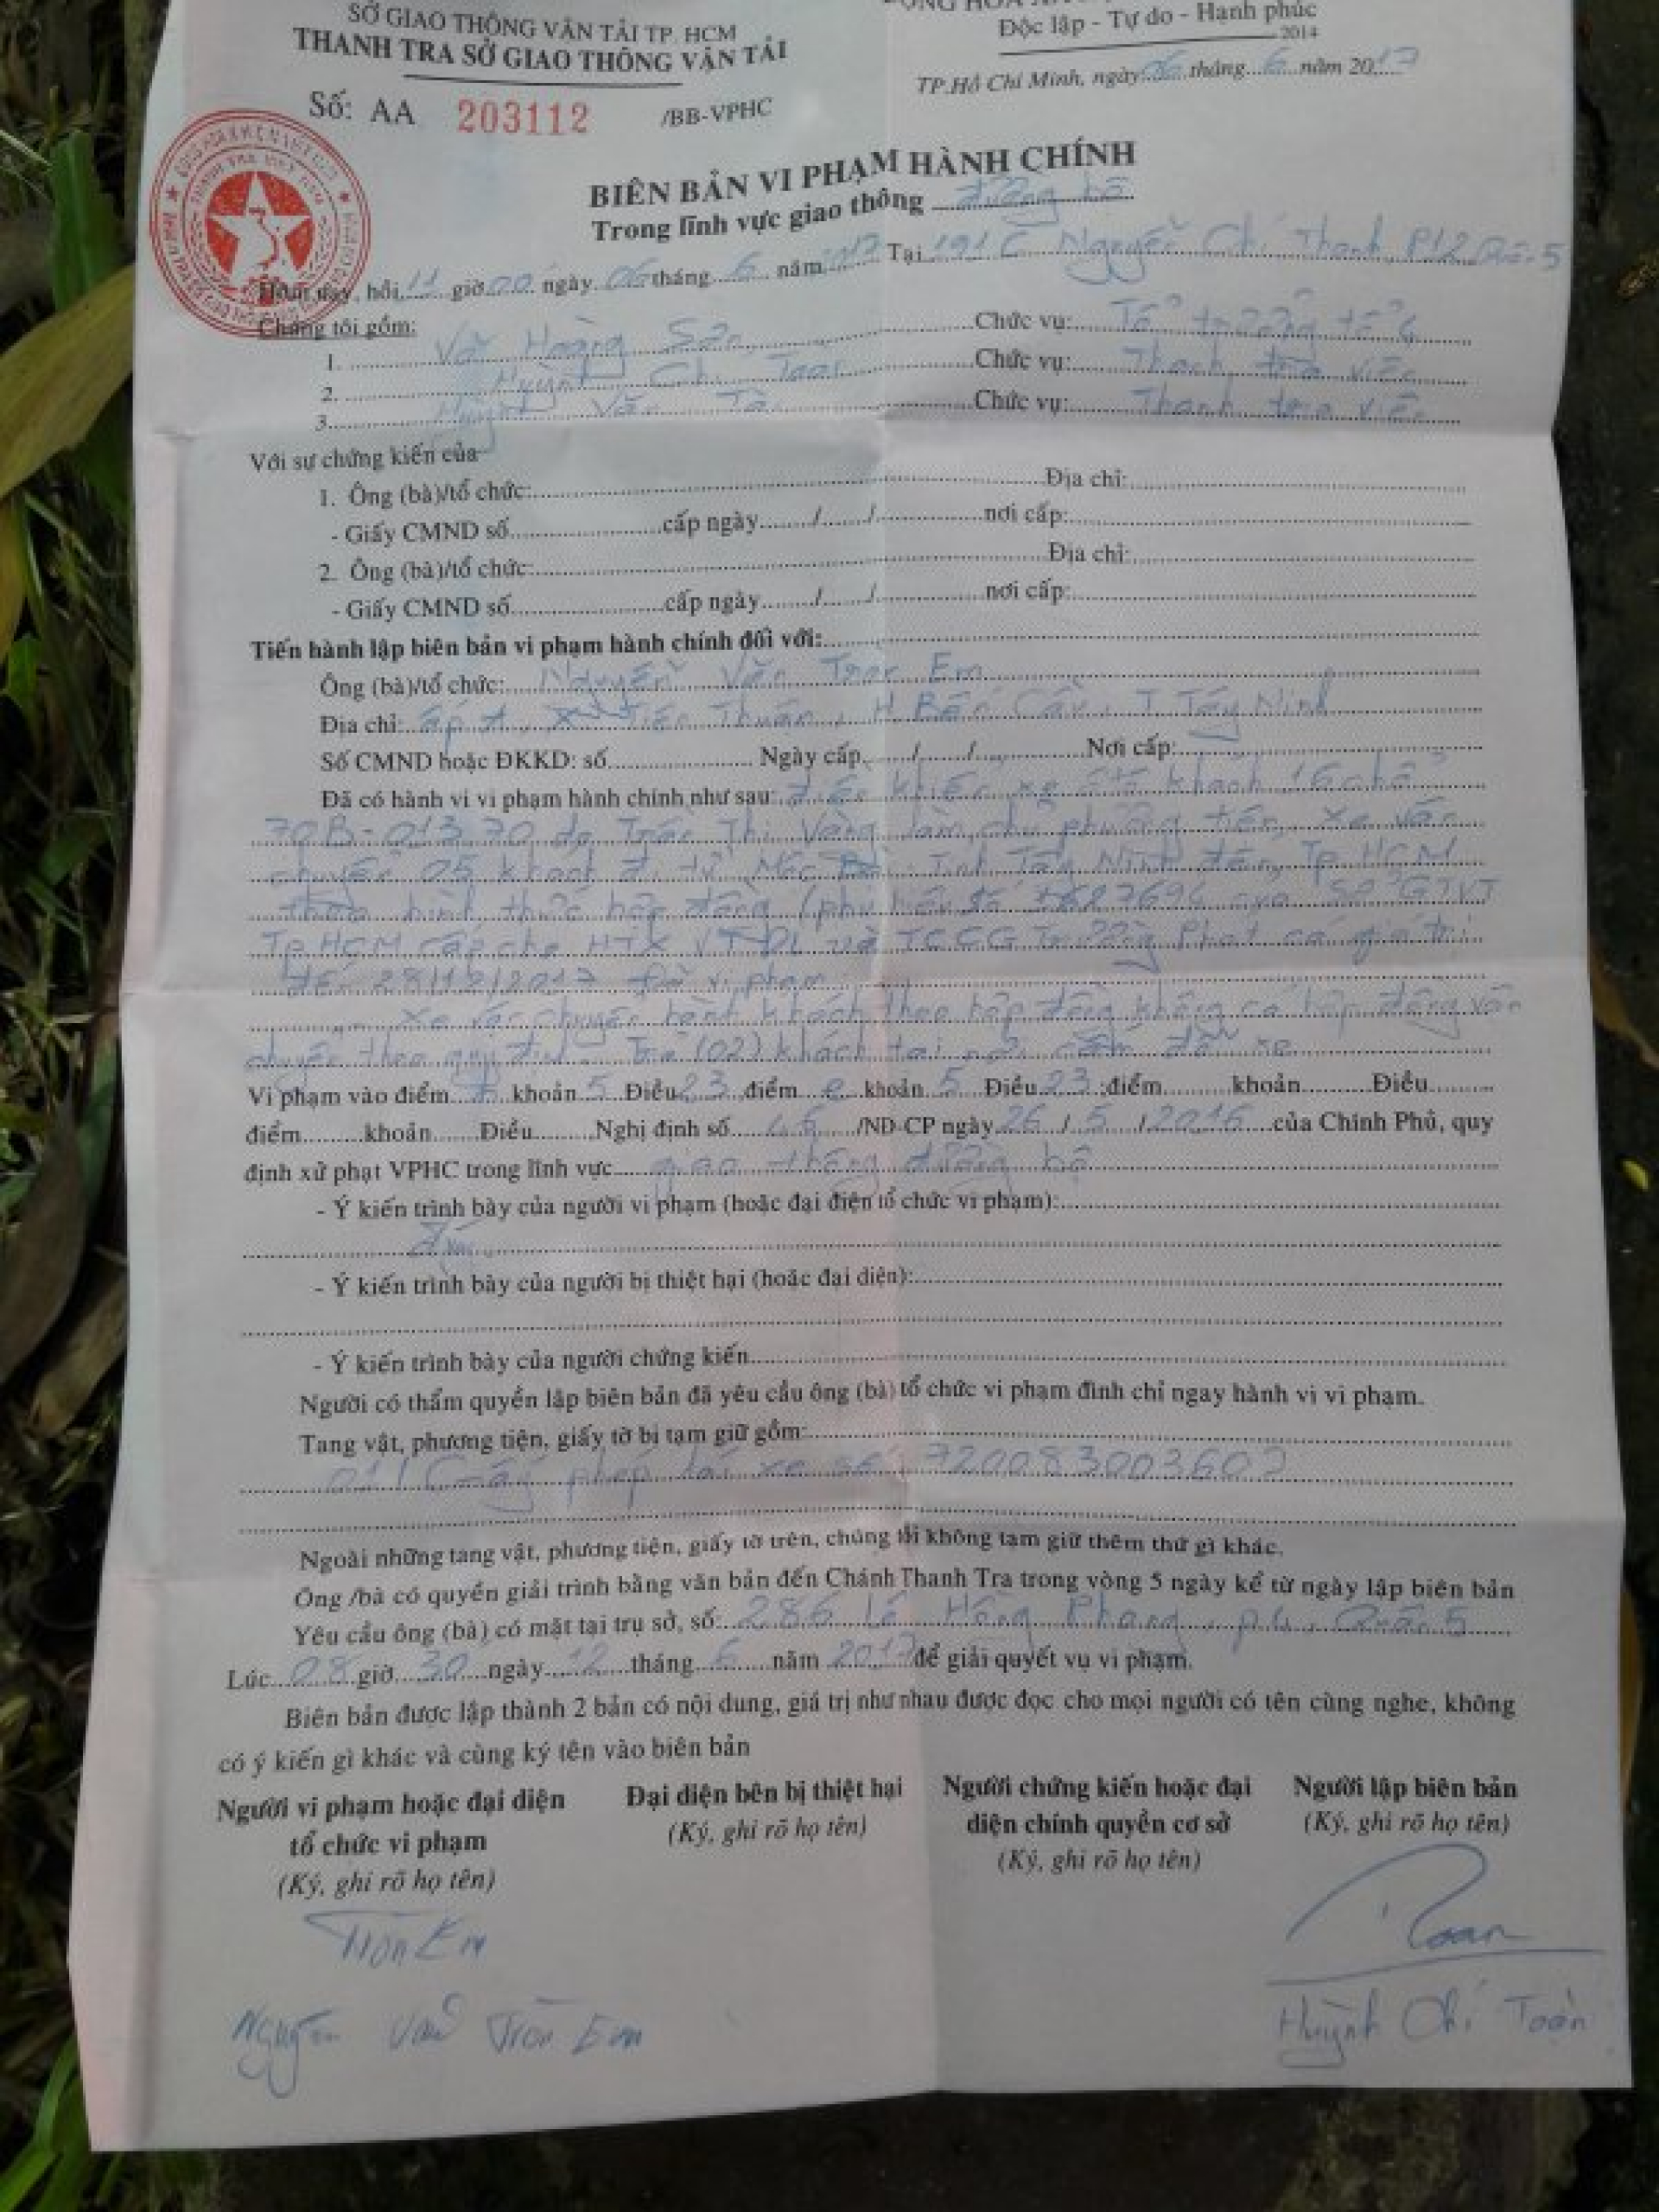 SỞ GIAO THÔNG VẬN TẢI TP. HCM
THANH TRA SỞ GIAO THÔNG VẬN TẢI
Độc lập - Tự do - Hạnh phúc
2014
TP.Hồ Chí Minh, ngày 06 tháng 6 năm 2017
Số: AA 203112 /BB-VPHC
BIÊN BẢN VI PHẠM HÀNH CHÍNH
Trong lĩnh vực giao thông đường bộ
Hôm nay, hồi 11 giờ 00 ngày 06 tháng 6 năm 2017 Tại 191 C Nguyễn Chí Thanh P12 Quận 5
Chúng tôi gồm:
1. Hoàng Sơn Chức vụ: Tổ trưởng tổ
2. Huỳnh Chí Toàn Chức vụ: Thanh tra viên
3. Huỳnh Văn Chức vụ: Thanh tra viên
Với sự chứng kiến của
1. Ông (bà)/tổ chức: Địa chỉ:
- Giấy CMND số cấp ngày / / nơi cấp:
2. Ông (bà)/tổ chức: Địa chỉ:
- Giấy CMND số cấp ngày / / nơi cấp:
Tiến hành lập biên bản vi phạm hành chính đối với:
Ông (bà)/tổ chức: Nguyễn Văn Tròn Em
Địa chỉ: ấp A, X Tiên Thuận, H Bến Cầu, T Tây Ninh
Số CMND hoặc ĐKKD: số Ngày cấp / / Nơi cấp:
Đã có hành vi vi phạm hành chính như sau: điều khiển xe ôtô khách 16 chỗ
70B-013.70 do Trần Thị Vàng làm chủ phương tiện, xe vận
chuyển 05 khách đi từ Mộc Bài Tỉnh Tây Ninh đến Tp HCM
theo hình thức hợp đồng (phù hiệu số của Sở GTVT
Tp HCM cấp cho HTX VT DL và TCCG Trường Phát có giá trị
đến 28/12/2017 Đã vi phạm
Xe vận chuyển hành khách theo hợp đồng không có hợp đồng vận
chuyển theo quy định. Trả (02) khách tại nơi cấm đỗ xe
Vi phạm vào điểm khoản 5 Điều 23 điểm e khoản 5 Điều 23 ;điểm khoản Điều
điểm khoản Điều Nghị định số 46 /NĐ-CP ngày 26 / 5 / 2016 của Chính Phủ, quy
định xử phạt VPHC trong lĩnh vực giao thông đường bộ
- Ý kiến trình bày của người vi phạm (hoặc đại diện tổ chức vi phạm):
- Ý kiến trình bày của người bị thiệt hại (hoặc đại diện):
- Ý kiến trình bày của người chứng kiến
Người có thẩm quyền lập biên bản đã yêu cầu ông (bà) tổ chức vi phạm đình chỉ ngay hành vi vi phạm.
Tang vật, phương tiện, giấy tờ bị tạm giữ gồm:
01 Giấy phép lái xe số: 720083003602
Ngoài những tang vật, phương tiện, giấy tờ trên, chúng tôi không tạm giữ thêm thứ gì khác.
Ông /bà có quyền giải trình bằng văn bản đến Chánh Thanh Tra trong vòng 5 ngày kể từ ngày lập biên bản
Yêu cầu ông (bà) có mặt tại trụ sở, số: 286 Lê Hồng Phong, p4, Quận 5
Lúc 08 giờ 30 ngày 12 tháng 6 năm 2017 để giải quyết vụ vi phạm.
Biên bản được lập thành 2 bản có nội dung, giá trị như nhau được đọc cho mọi người có tên cùng nghe, không
có ý kiến gì khác và cùng ký tên vào biên bản
Người vi phạm hoặc đại diện Đại diện bên bị thiệt hại Người chứng kiến hoặc đại Người lập biên bản
tổ chức vi phạm (Ký, ghi rõ họ tên) diện chính quyền cơ sở (Ký, ghi rõ họ tên)
(Ký, ghi rõ họ tên) (Ký, ghi rõ họ tên)
Tròn Em Toàn
Nguyễn Văn Tròn Em Huỳnh Chí Toàn